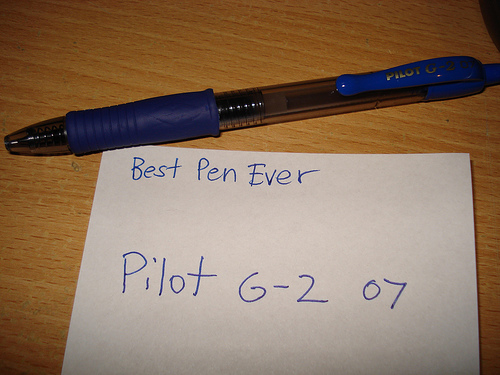 PILOT G-2
Best Pen Ever
Pilot G-2 07